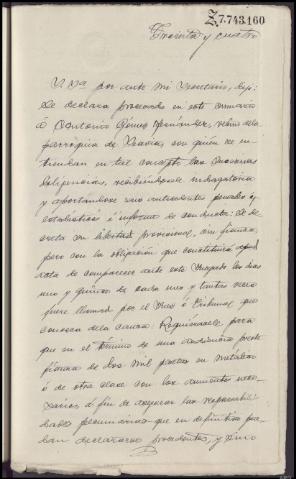 Z.7.743.160
Treinta y cuatro
Una por ante mi Secretario, dijo:
Se declara procesado en este sumario
á Antonio Gómez Hernández, vecino de la
parroquia de, con quien se en-
tiendan en tal concepto las sucesivas
diligencias, recibiéndosele indagatoria
y aportándose sus antecedentes penales y
estadisticos é informes de conducta: Se de-
creta su libertad provisional, sin fianza,
pero con la obligación que constituirá apud
acta de comparecer ante este Juzgado los dias
uno y quince de cada mes y tantas veces
fuere llamado por el mismo ó Tribunal que
conozca de la causa. Requiérasele para
que en el término de una audiencia preste
fianza de dos mil pesetas en metálico
ó de otra clase con los aumentos nece-
sarios á fin de asegurar las responsabili-
dades pecuniarias que en definitiva pue-
dan declararse procedentes, y sino